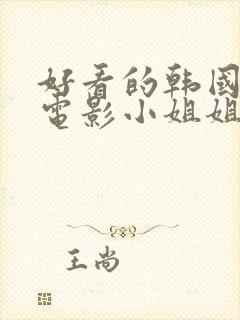 好看的韩國
電影小姐姐
王尚